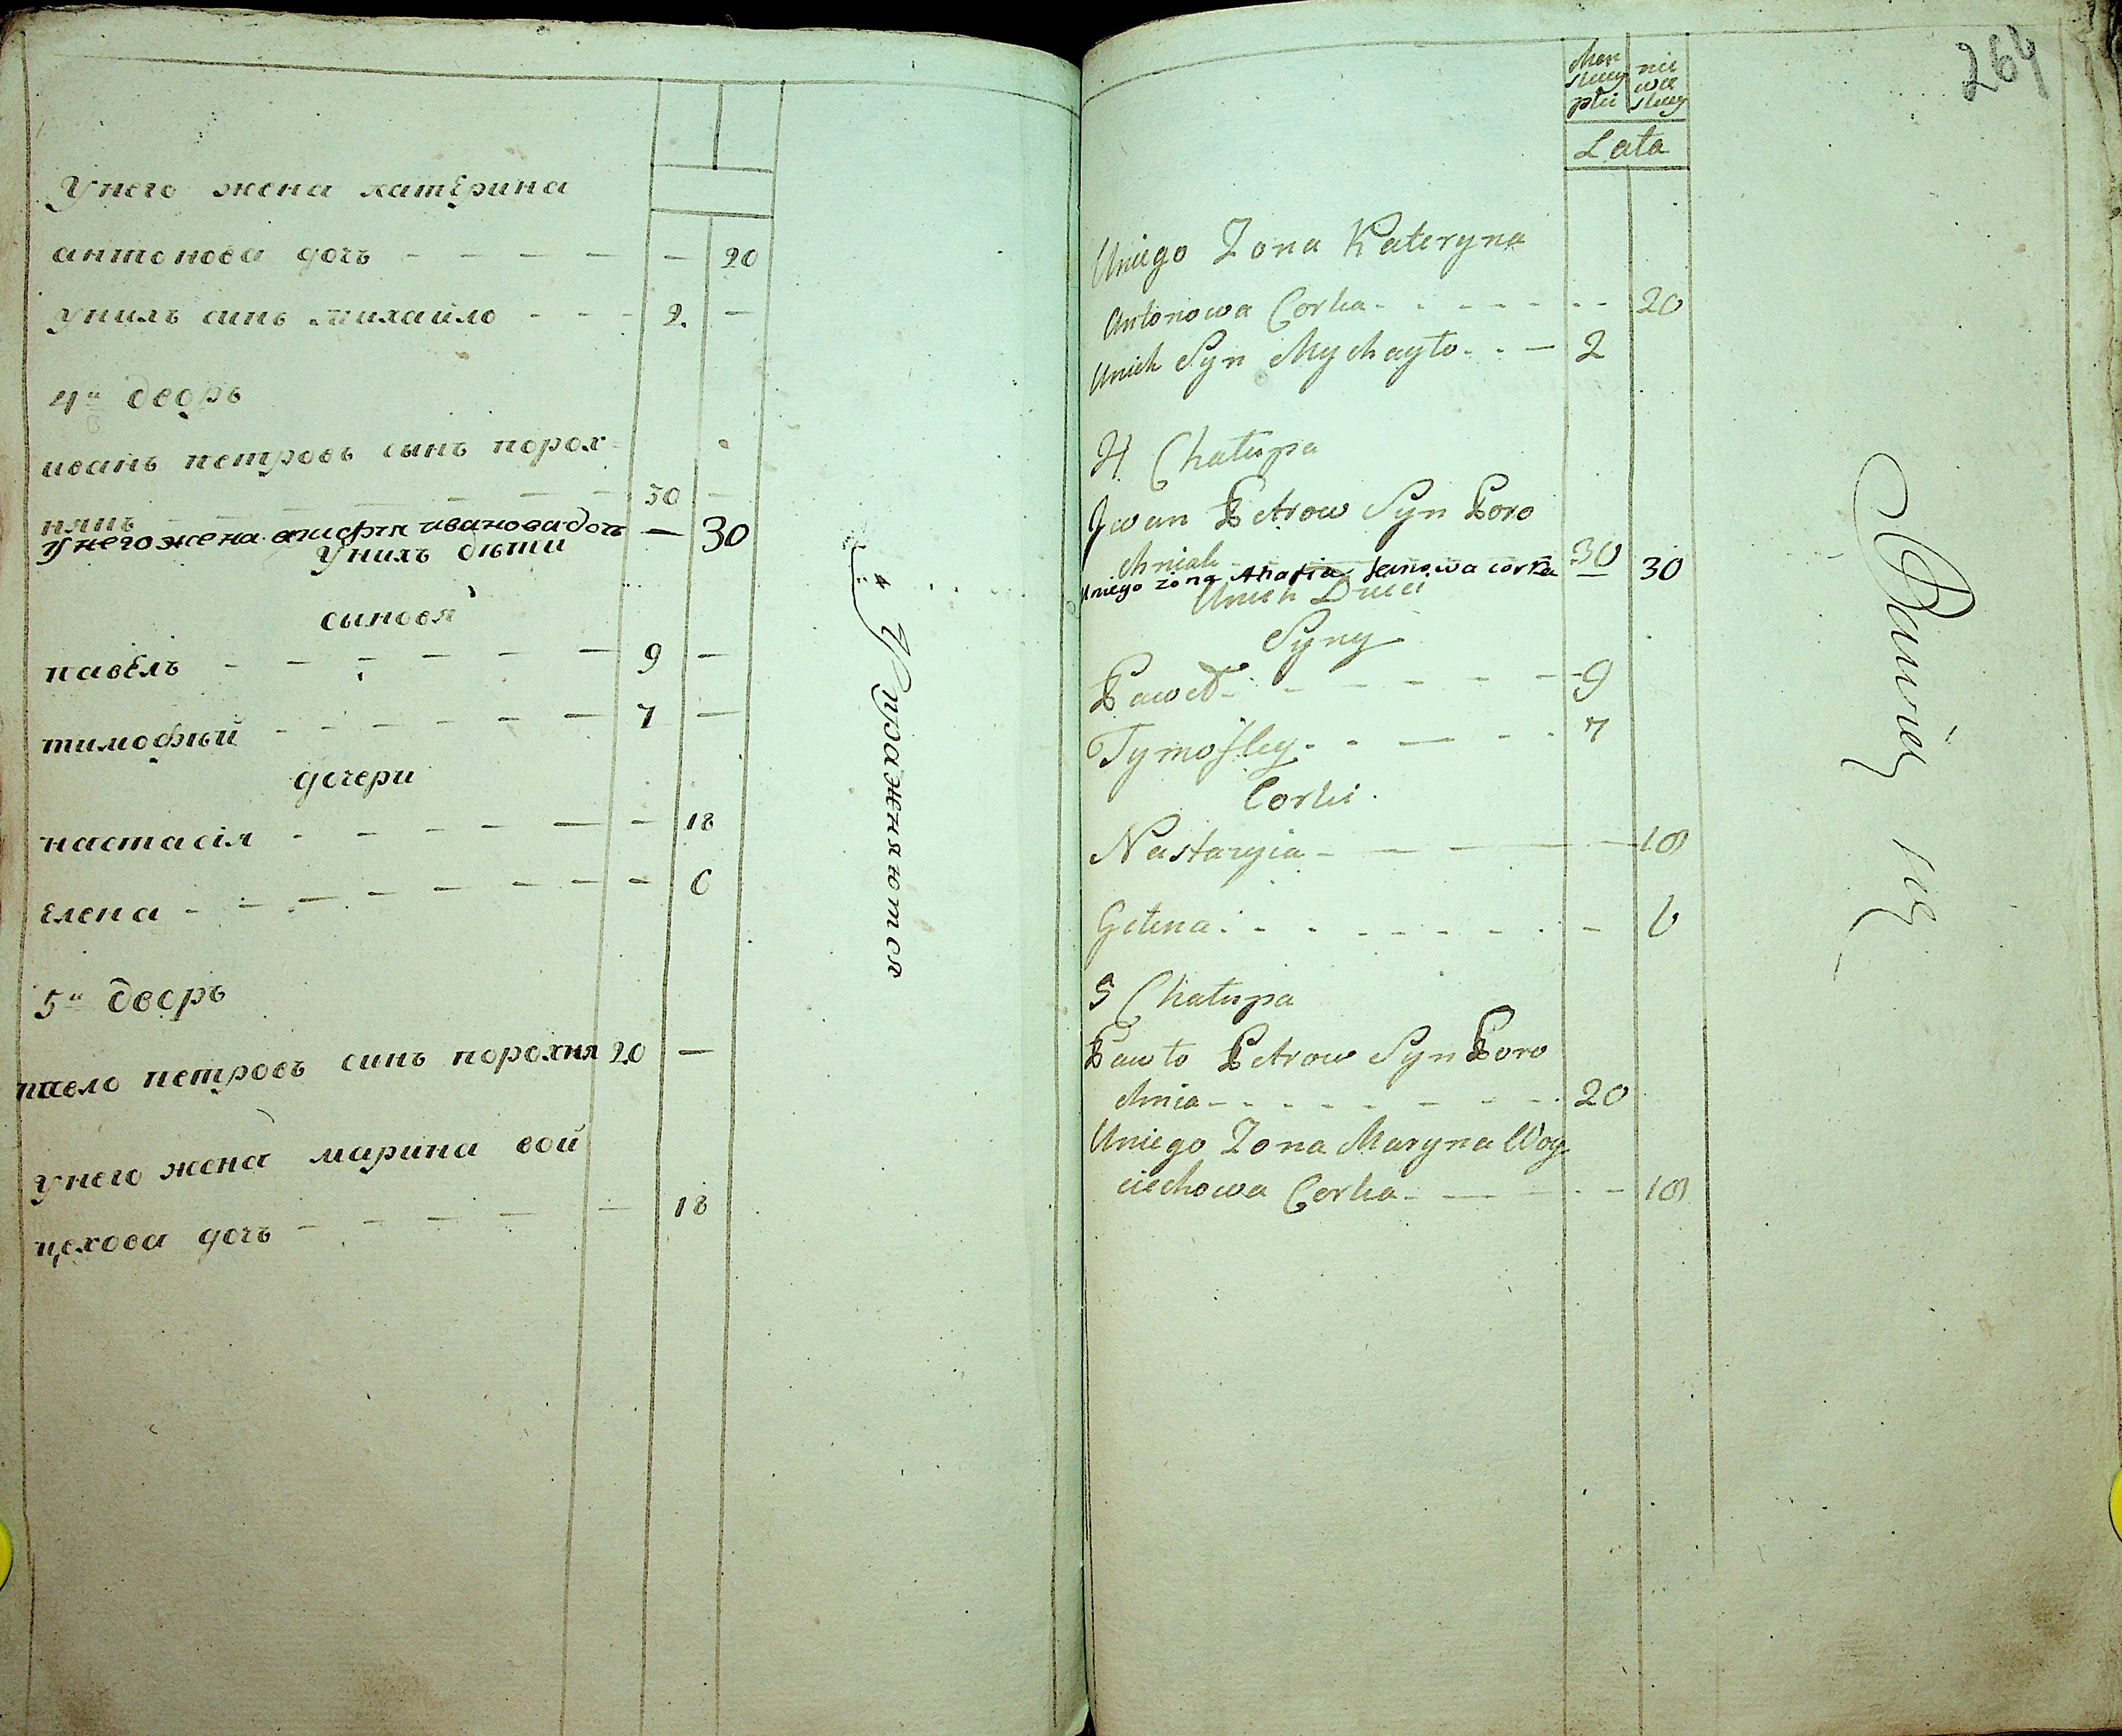 Унего жена катерина
антонова дочь — — — — — 20
унихъ синъ михайло - - - 2. —
4й дворъ
иванъ петровъ сынъ порох-
някъ — — — — — 30 —
Унего жена агафия иванова дочь — 30
Унихъ дѣти
сыновя
павелъ - — - — — — 9 —
тимофѣй - - — - — — 7 —
дочери
настасія - - — — — — 18
елена - - — - — - — 6
5й дворъ
павло петровъ синъ порохня 20 —
унего жена марина вой
цехова дочь — — — — — 18
Упражняются
264
Men
skiey
płci
nie
wie
skiey
Lata
Uniego Zona Kateryna
Antonowa Corka - - - - - - - 20
Unich Syn Mychayło - - — 2
4 Chałupa
Jwan Petrow Syn Poro
chniak 30
Uniego zona Ahafia Janowa corka — 30
Unich Dzieci
Syny
Paweł - - - - - - 9
Tymofley - - — - - 7
Corki.
Nastazyia - — — — — 18
Gelena - - - - - - - 6
5 Chałupa
Pawło Petrow Syn Poro
chnia - - - - - - - - 20
Uniego Zona Maryna Woy
ciechowa Corka - — - - - 18
Bawią się